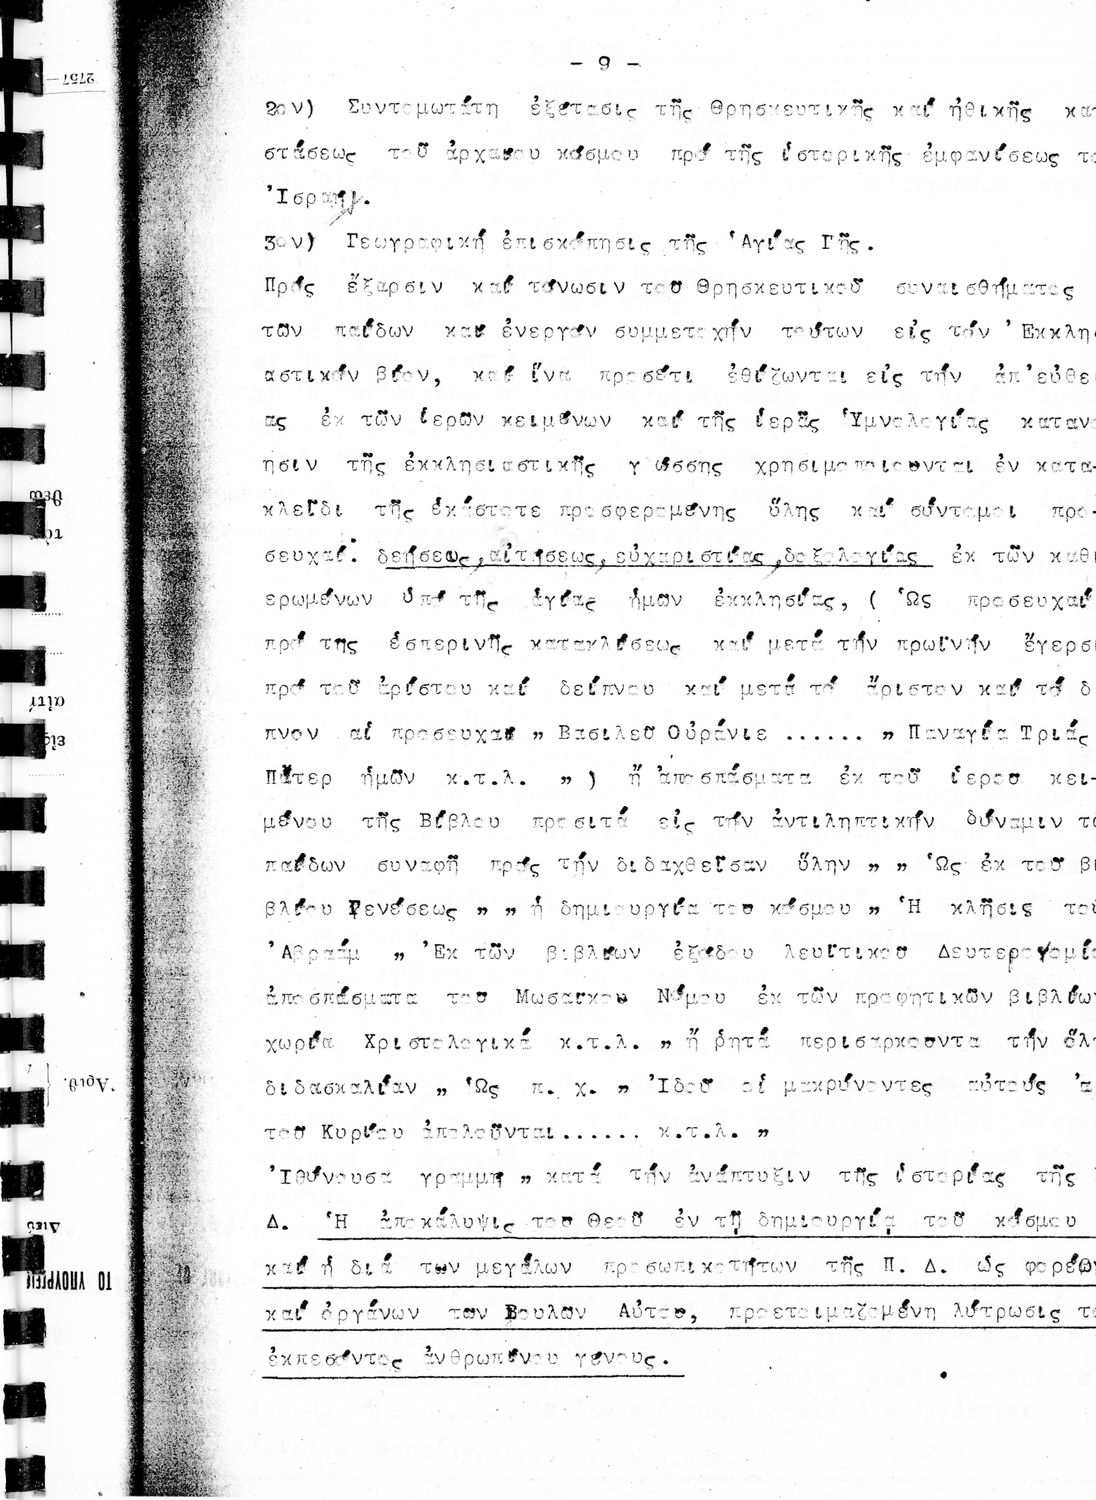 - 9 -
2ον) Συντομωτάτη ἐξέτασις τῆς Θρησκευτικῆς καί ἠθικῆς κατ
στάσεως τοῦ ἀρχαίου κόσμου πρό τῆς ἱστορικῆς ἐμφανίσεως το
Ἰσραήλ.
3ον) Γεωγραφική ἐπισκόπησις τῆς Ἁγίας Γῆς.
Πρός ἔξαρσιν καί τόνωσιν τοῦ Θρησκευτικοῦ συναισθήματος
τῶν παίδων καί ἐνεργόν συμμετοχήν τούτων εἰς τόν Ἐκκλησ
αστικόν βίον, καί ἵνα προσέτι ἐθίζωνται εἰς τήν ἀπ'εὐθεί
ας ἐκ τῶν ἱερῶν κειμένων καί τῆς ἱερᾶς Ὑμνολογίας κατανό
ησιν τῆς ἐκκλησιαστικῆς γ ώσσης χρησιμοποιοῦνται ἐν κατα-
κλεῖδι τῆς ἑκάστοτε προσφερομένης ὕλης καί σύντομοι προ-
σευχαί. δεήσεως, αἰτήσεως, εὐχαριστίας, δοξολογίας ἐκ τῶν καθι
ερωμένων ὑπό τῆς ἁγίας ἡμῶν ἐκκλησίας, ( Ὡς προσευχαί
πρό της ἑσπερινῆς κατακλίσεως καί μετά τήν πρωϊνήν ἔγερσι
πρό τοῦ ἀρίστου καί δείπνου καί μετά τό ἄριστον καί τό δ
πνον αἱ προσευχαί „ Βασιλεῦ Οὐράνιε ...... „ Παναγία Τριάς
Πάτερ ἡμῶν κ.τ.λ. „ ) ἤ ἀποσπάσματα ἐκ τοῦ ἱεροῦ κει-
μένου τῆς Βίβλου προσιτά εἰς τήν ἀντιληπτικήν δύναμιν τῶ
παίδων συναφῆ πρός τήν διδαχθεῖσαν ὕλην „ „ Ὡς ἐκ τοῦ βι
βλίου Γενέσεως „ „ ἡ δημιουργία του κόσμου „ Ἡ κλῆσις τοῦ
Ἀβραάμ „ Ἐκ τῶν βιβλίων ἐξόδου λευϊτικοῦ Δευτερονομίο
ἀποσπάσματα τοῦ Μωσαϊκοῦ Νόμου ἐκ τῶν προφητικῶν βιβλίων
χωρία Χριστολογικά κ.τ.λ. „ ἤ ῥητά περισαρκοῦντα τήν ὅλη
διδασκαλίαν „ Ὡς π. χ. „ Ἰδού οἱ μακρύνοντες αὐτούς ἀ
τοῦ Κυρίου ἀπολοῦνται...... κ.τ.λ. „
Ἰθύνουσα γραμμή „ κατά τήν ἀνάπτυξιν τῆς ἱστορίας τῆς
Δ. Ἡ ἀποκάλυψις τοῦ Θεοῦ ἐν τῇ δημιουργίᾳ τοῦ κόσμου
καί ἡ διά τῶν μεγάλων προσωπικοτήτων τῆς Π. Δ. ὡς φορέων
καί ὀργάνων τῶν Βουλῶν Αὐτοῦ, προετοιμαζομένη λύτρωσις το
ἐκπεσόντος ἀνθρωπίνου γένους.
2757
αἰτή
Ἀριθ.
Διεύ
ΤΟ ΥΠΟΥΡΓΕΙ